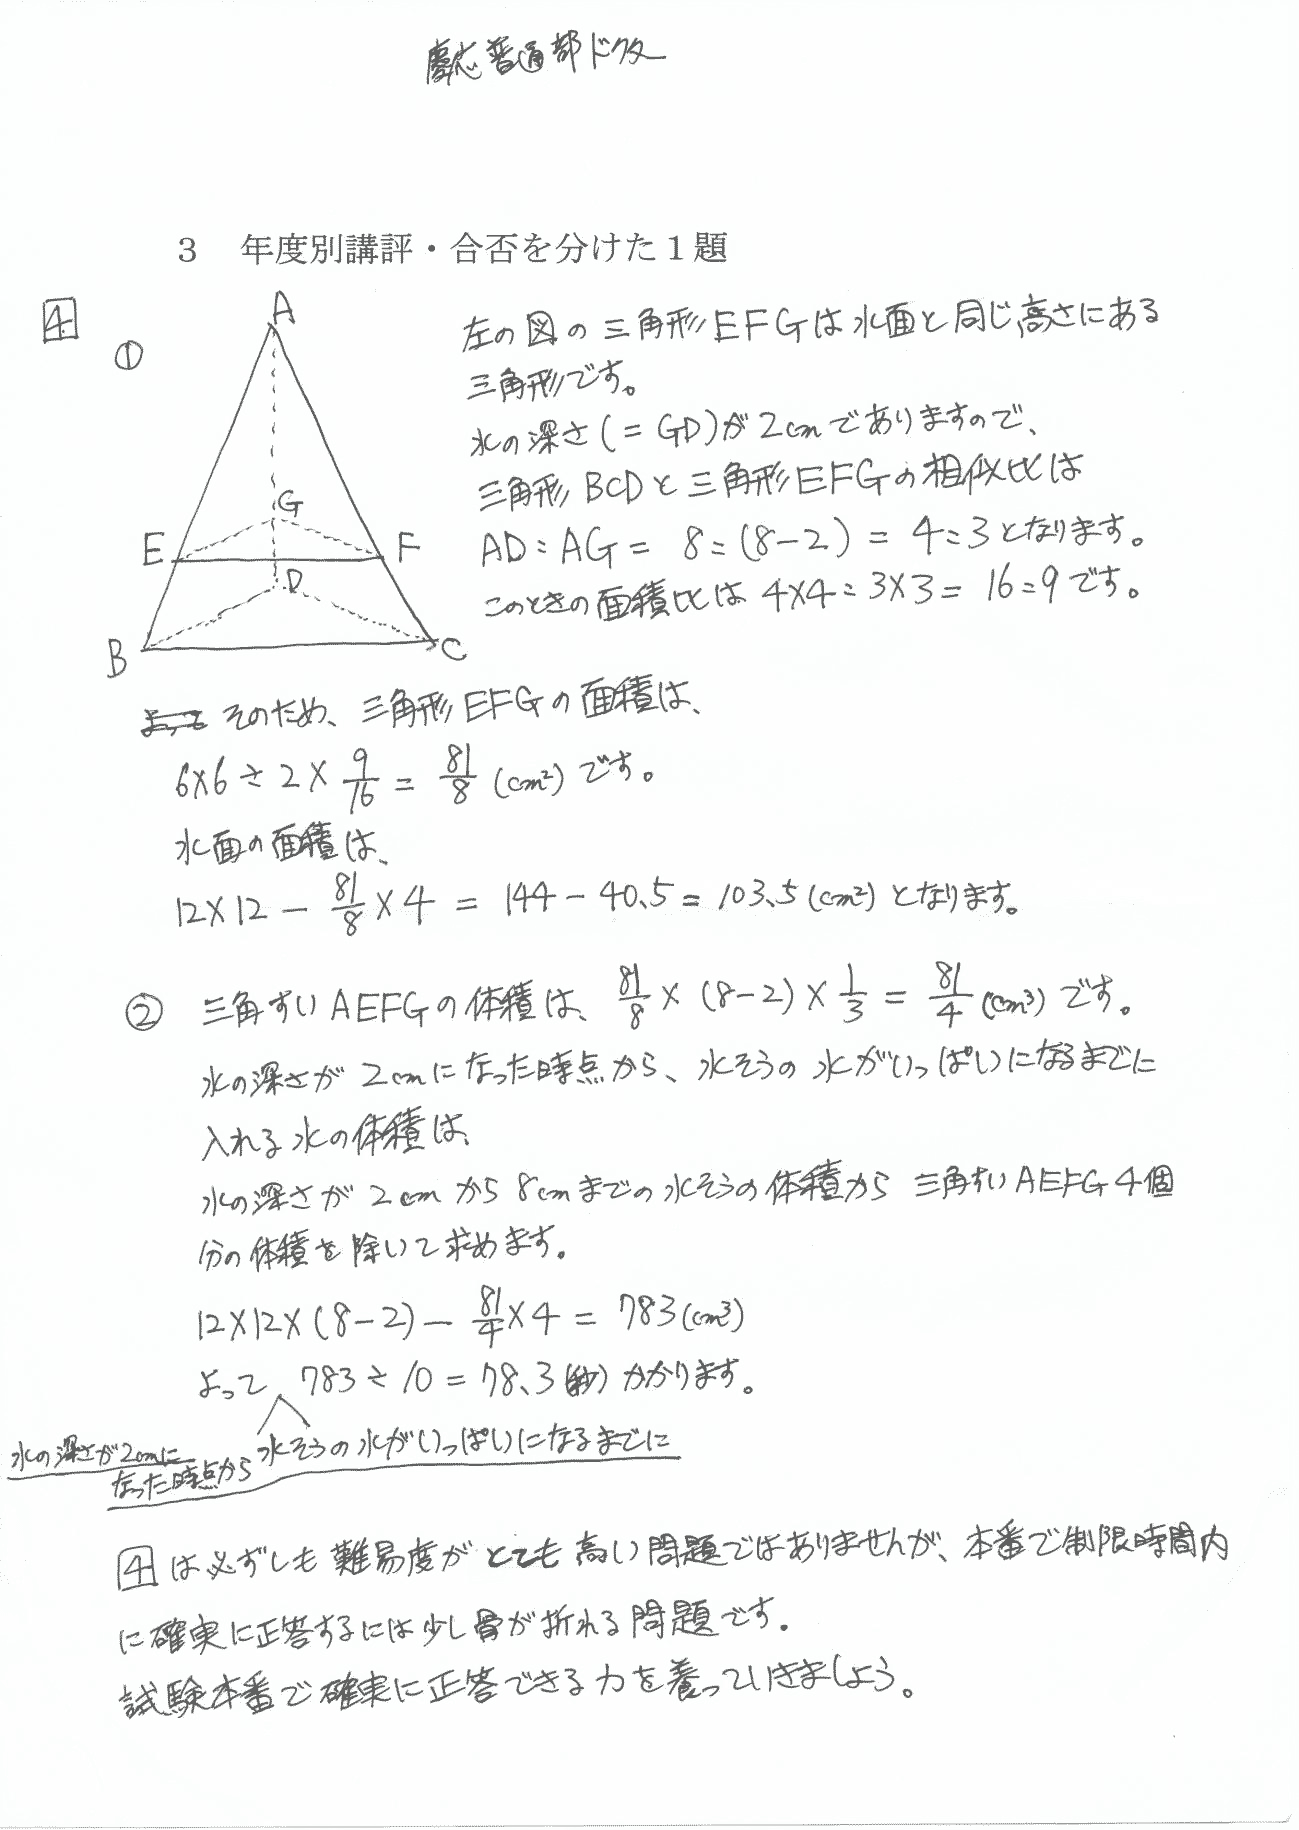 慶応普通部ドクター
3　年度別講評・合否を分けた1題
4
①
A
G
E
F
D
B
C
左の図の三角形EFGは水面と同じ高さにある
三角形です。
水の深さ(=GD)が2cmでありますので、
三角形BCDと三角形EFGの相似比は
AD:AG= 8:(8-2) = 4:3となります。
このときの面積比は 4×4:3×3= 16:9です。
そのため、三角形EFGの面積は、
6×6÷2×9/16=81/8(cm²)です。
水面の面積は、
12×12-81/8×4=144-40.5=103.5(cm²)となります。
② 三角すいAEFGの体積は、81/8×(8-2)×1/3=81/4(cm³)です。
水の深さが2cmになった時点から、水そうの水がいっぱいになるまでに
入れる水の体積は、
水の深さが2cmから8cmまでの水そうの体積から三角すいAEFG4個
分の体積を除いて求めます。
12×12×(8-2)-81/4×4=783(cm³)
よって 783÷10=78.3(秒)かかります。
水の深さが2cmに
なった時点から水そうの水がいっぱいになるまでに
4は必ずしも難易度がとても高い問題ではありませんが、本番で制限時間内
に確実に正答するには少し骨が折れる問題です。
試験本番で確実に正答できる力を養っていきましょう。